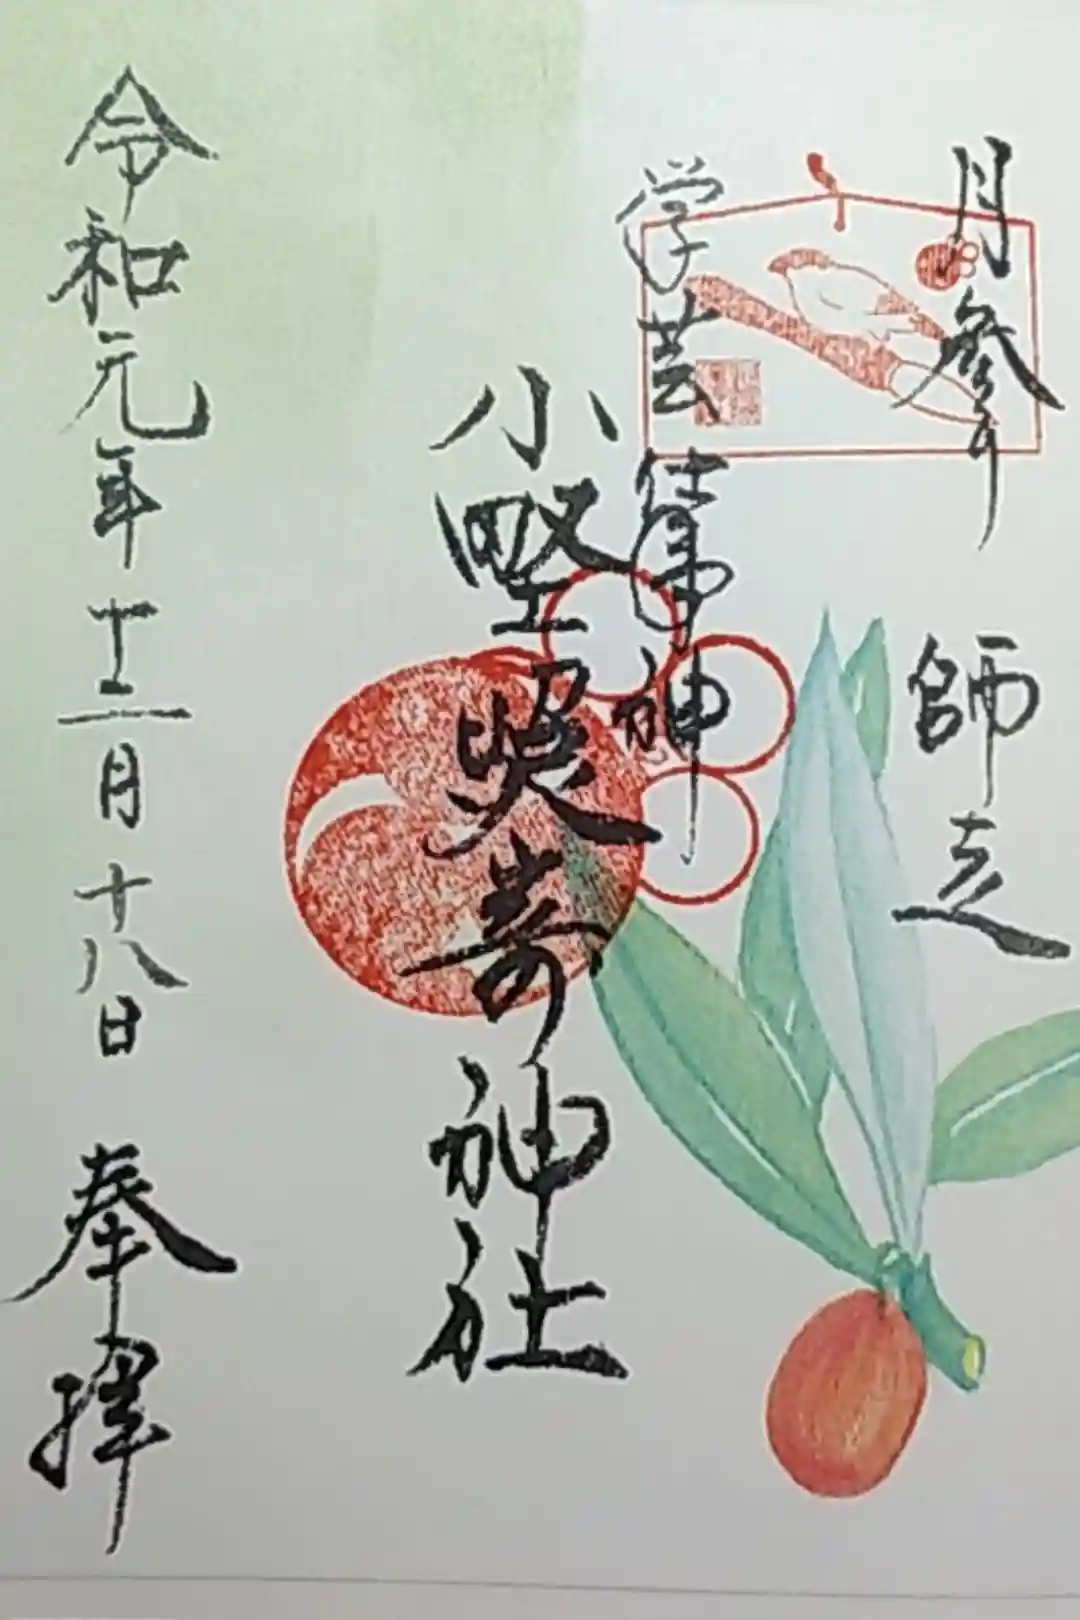 月参り　師走
学芸 神
小野照崎神社
令和元年十二月十八日　奉拝